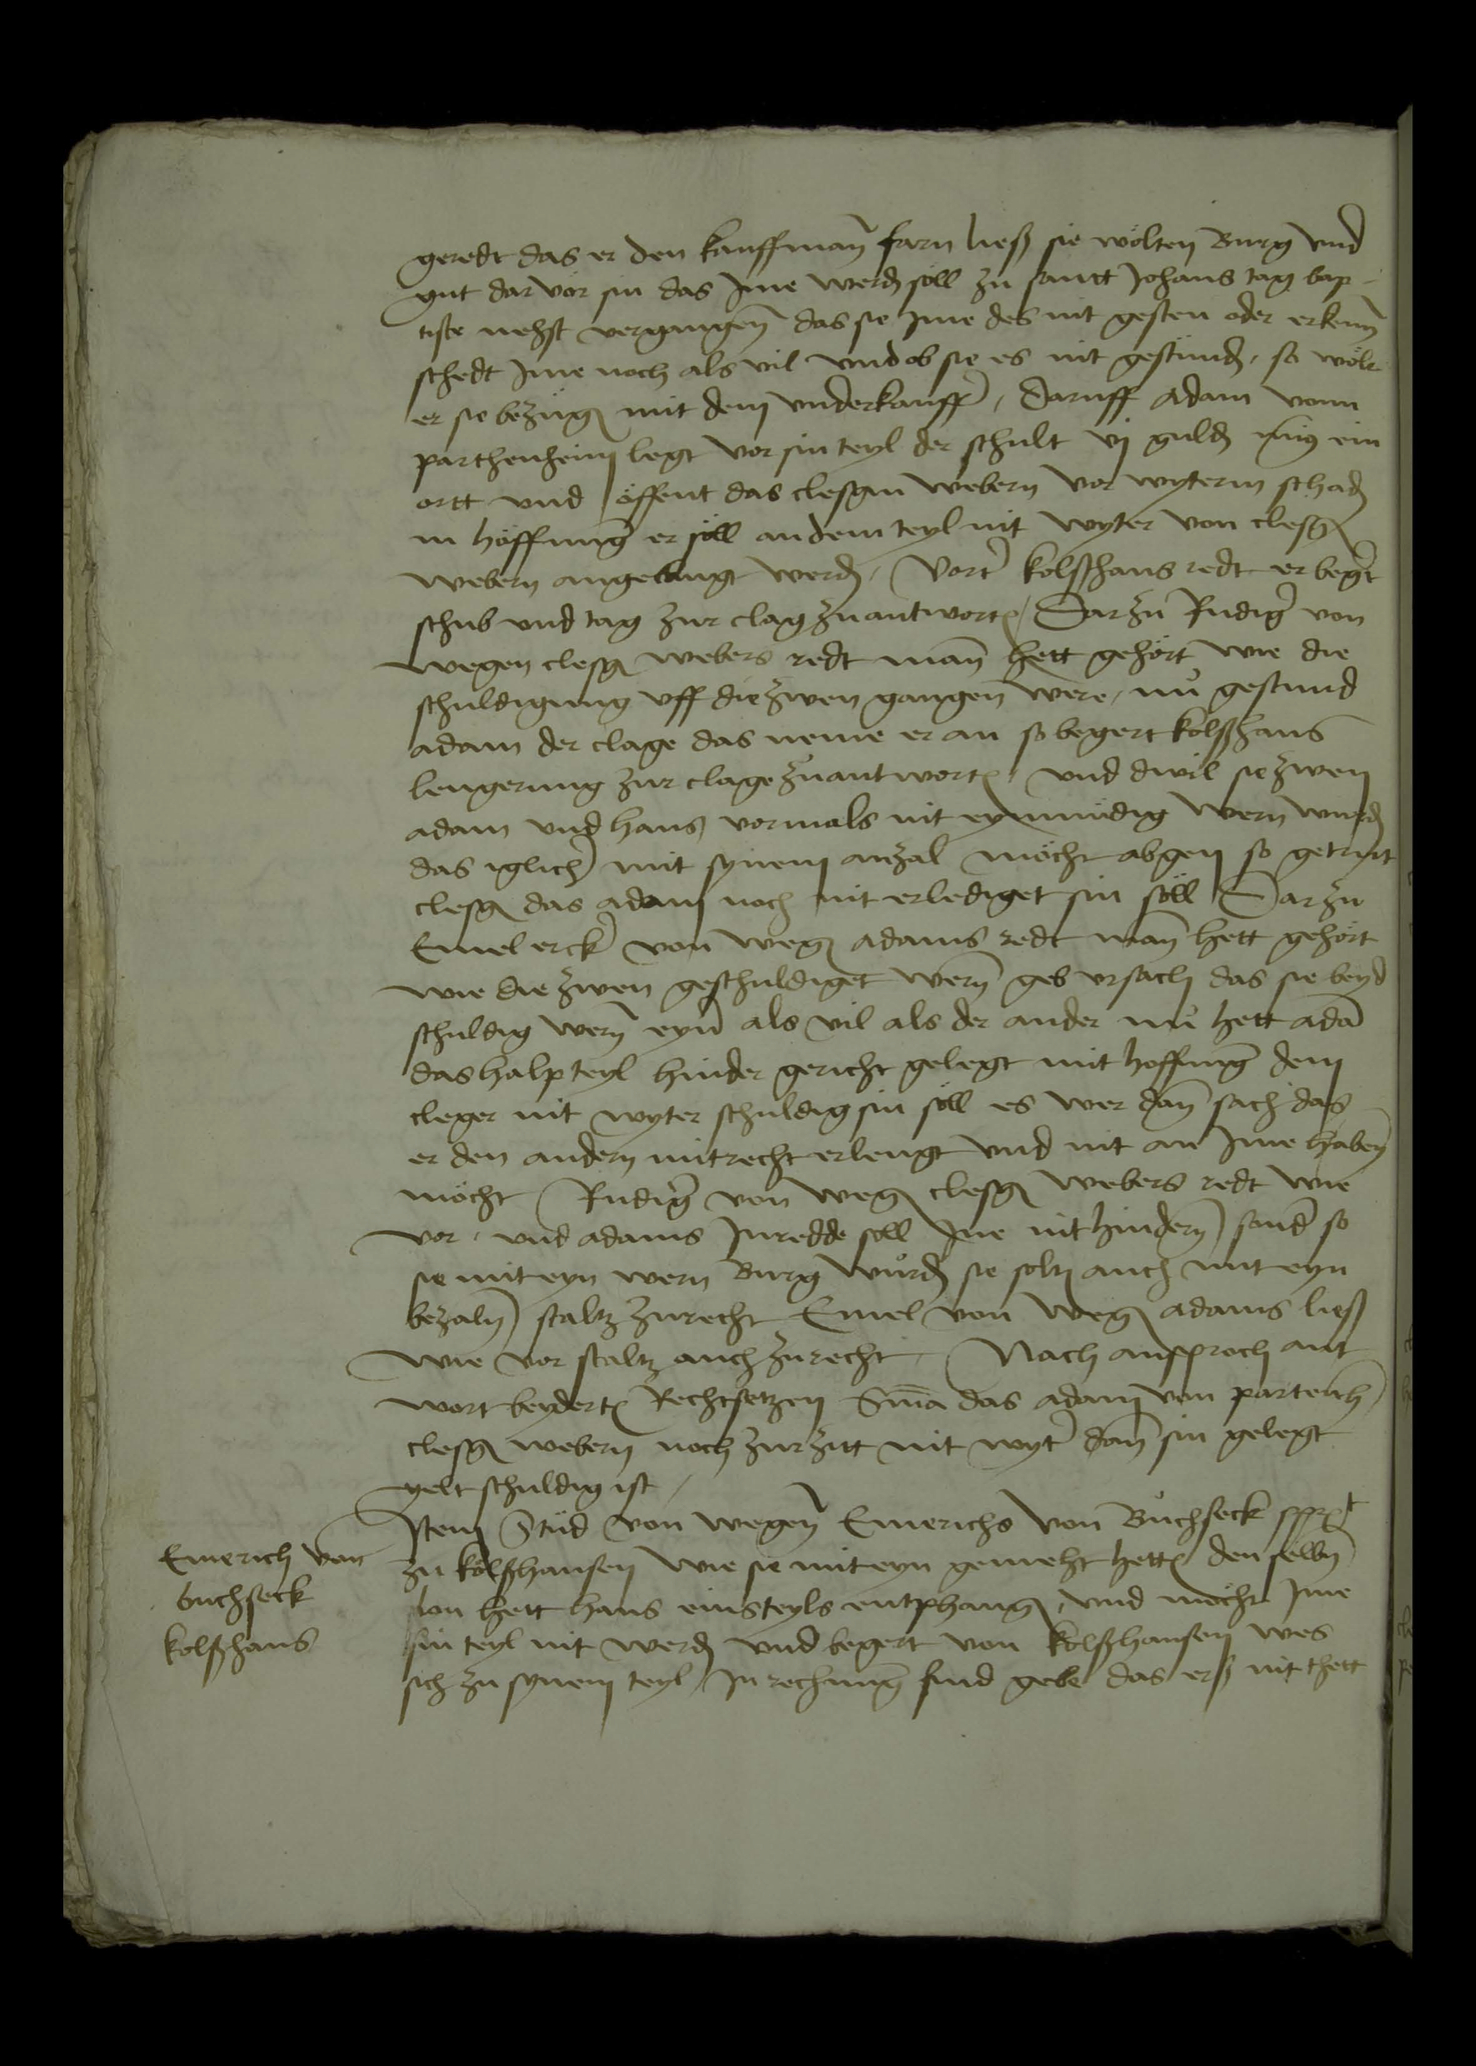 geredt das er den kauffman farn ließ sie wölten Burg vnd
gut dar vor sin das Ime werd soll zu sanct Johans tag bap
tiste nehst vergangen das sie Ime des nit gesten oder erkenn
schedt Ime noch als vil vnd ob sie es nit gestünd, so wolt
er sie bezüg mit dem vnderkauff, Daruff Adam vonn
parthenheim legt vor sin teyl der schult vj guld myn ein
ortt vnd öffent das clesgin webern vor wyterm schad
in höffnung er söll an dem teyl nit wyter von clesg
webern angelangt werd, Vort kolßhans redt er begert
schub vnd tag zur clag zu antwort, Darzu Rudiger von
wegen clesg webers redt man hett gehört wie die
schuldigung vff die zwen gangen were, nu gestund
adam der clage das neme er an so begert kolßhans
lengerung zur clage zu antwort, vnd dwil sie zwen
adam vnd hans vormals nit eynmüdig wern wurd
das iglich mit synem anzal möcht abgen so getrut
clesg das adam noch nit erlediget sin söll Darzu
Emel erck von weg adams redt man hett gehört
wie die zwen geschuldiget wern geb vrsach das sie beyd
schuldig wern eyn als vil als der ander nu hett adam
das halp teyl hinder gericht gelegt mit hoffnung dem
cleger nit wyter schuldig sin söll es wer dan sach das
er den andern mit recht erlengt vnd nit an Ime haben
möcht Rudiger von weg clesg webers redt wie
vor, vnd adams Inredde soll Ine nit hindern sonder so
sie mit eyn wern Burg wurd sie solt auch mit eyn
bezaln staltz zu recht Emel von weg adams ließ
wie vor staltz auch zu recht, Nach ansproch ant
wort beydert Rechtsetzen Sma das adam von partenh
clesg webern noch zur zitt nit wyt dan sin gelegt
gelt schuldig ist,
Item Stud von wegen Emerichs von Buchseck spricht
zu kolßhansen wie sie mit eyn gemeht hett den selbn
lon hett hans einsteyls entphang, vnd möcht Ime
sin teyl nit werd vnd begert von kolßhansen wes
sich zu synem teyl In rechnung find gebe das erß nit thett
Emerich von
buchseck
kolßhans